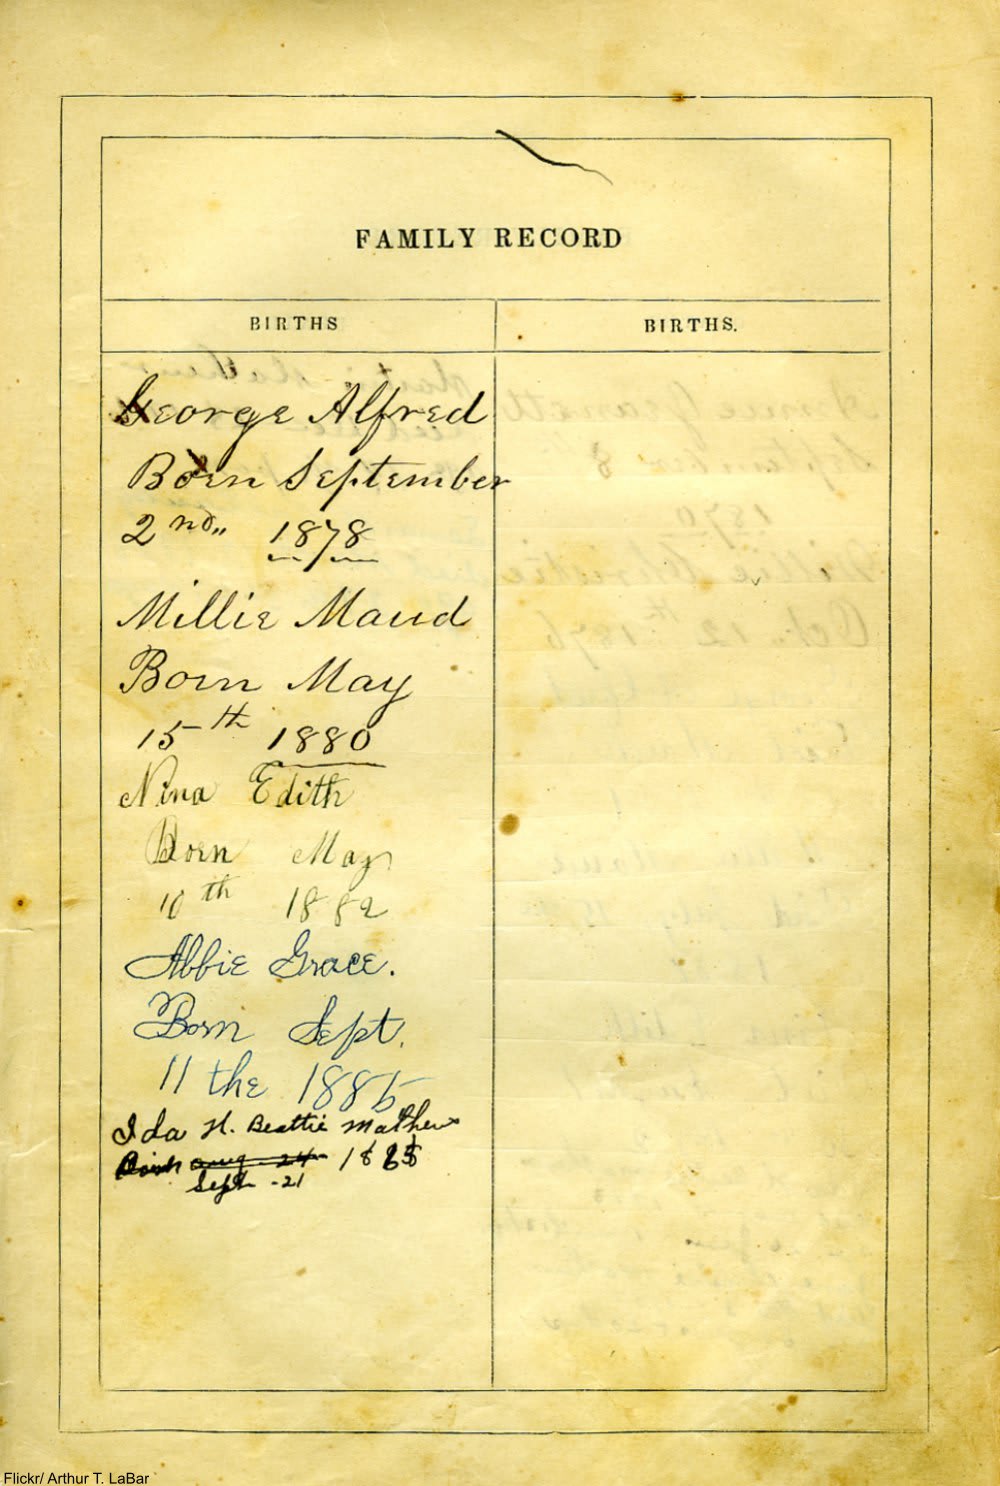 FAMILY RECORD
BIRTHS
BIRTHS.
George Alfred
Born September
2nd,, 1878
Millie Maud
Born May
15th 1880
Nina Edith
Born May
10th 1882
Abbie Grace.
Born Sept.
11 the 1885
Ida H. Beattie Mathews
aug 24
Sept -21
Flickr/ Arthur T. LaBar